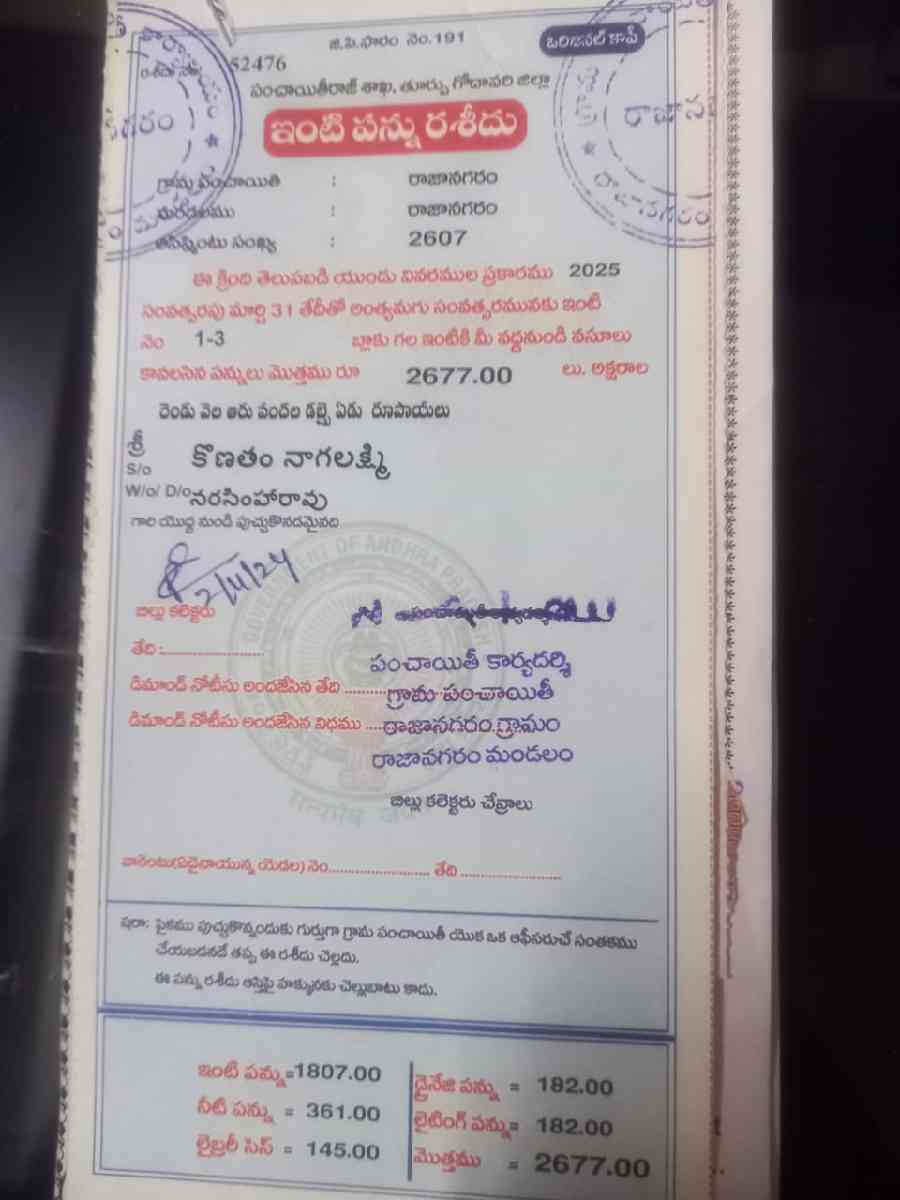 జి.పి.ఫారం నెం.191
ఒరిజినల్ కాపీ
రశీదు నెం 52476
పంచాయితీరాజ్ శాఖ, తూర్పు గోదావరి జిల్లా
ఇంటి పన్ను రశీదు
గ్రామ పంచాయితి : రాజానగరం
మండలము : రాజానగరం
అసెస్మెంటు సంఖ్య : 2607
ఈ క్రింది తెలుపబడి యుండు వివరముల ప్రకారము 2025
సంవత్సరపు మార్చి 31 తేదీతో అంత్యమగు సంవత్సరమునకు ఇంటి
నెం 1-3 బ్లాకు గల ఇంటికి మీ వద్దనుండి వసూలు
కావలసిన పన్నులు మొత్తము రూ 2677.00 లు. అక్షరాల
రెండు వెల ఆరు వందల డబ్బై ఏడు రూపాయలు
శ్రీ
S/o కొణతం నాగలక్ష్మి
W/o/ D/o నరసింహారావు
గారి యొద్ద నుండి పుచ్చుకొనడమైనది
2/4/24
GOVERNMENT OF ANDHRA PRADESH
బిల్లు కలెక్టరు
తేది:....................
పంచాయితీ కార్యదర్శి
డిమాండ్ నోటీసు అందజేసిన తేది .......... గ్రామ పంచాయితీ
డిమాండ్ నోటీసు అందజేసిన విధము .... రాజానగరం గ్రామం
రాజానగరం మండలం
బిల్లు కలెక్టరు చేవ్రాలు
వారెంటు(ఏదైనాయున్న యెడల) నెం........................ తేది........................
షరా: పైకము పుచ్చుకొన్నందుకు గుర్తుగా గ్రామ పంచాయితీ యొక ఒక ఆఫీసరుచే సంతకము
చేయబడనదే తప్ప ఈ రశీదు చెల్లదు.
ఈ పన్ను రశీదు ఆస్తిపై హక్కునకు చెల్లుబాటు కాదు.
ఇంటి పన్ను=1807.00 డ్రైనేజి పన్ను = 182.00
నీటి పన్ను = 361.00 లైటింగ్ పన్ను= 182.00
లైబ్రరీ సెస్ = 145.00 మొత్తము = 2677.00